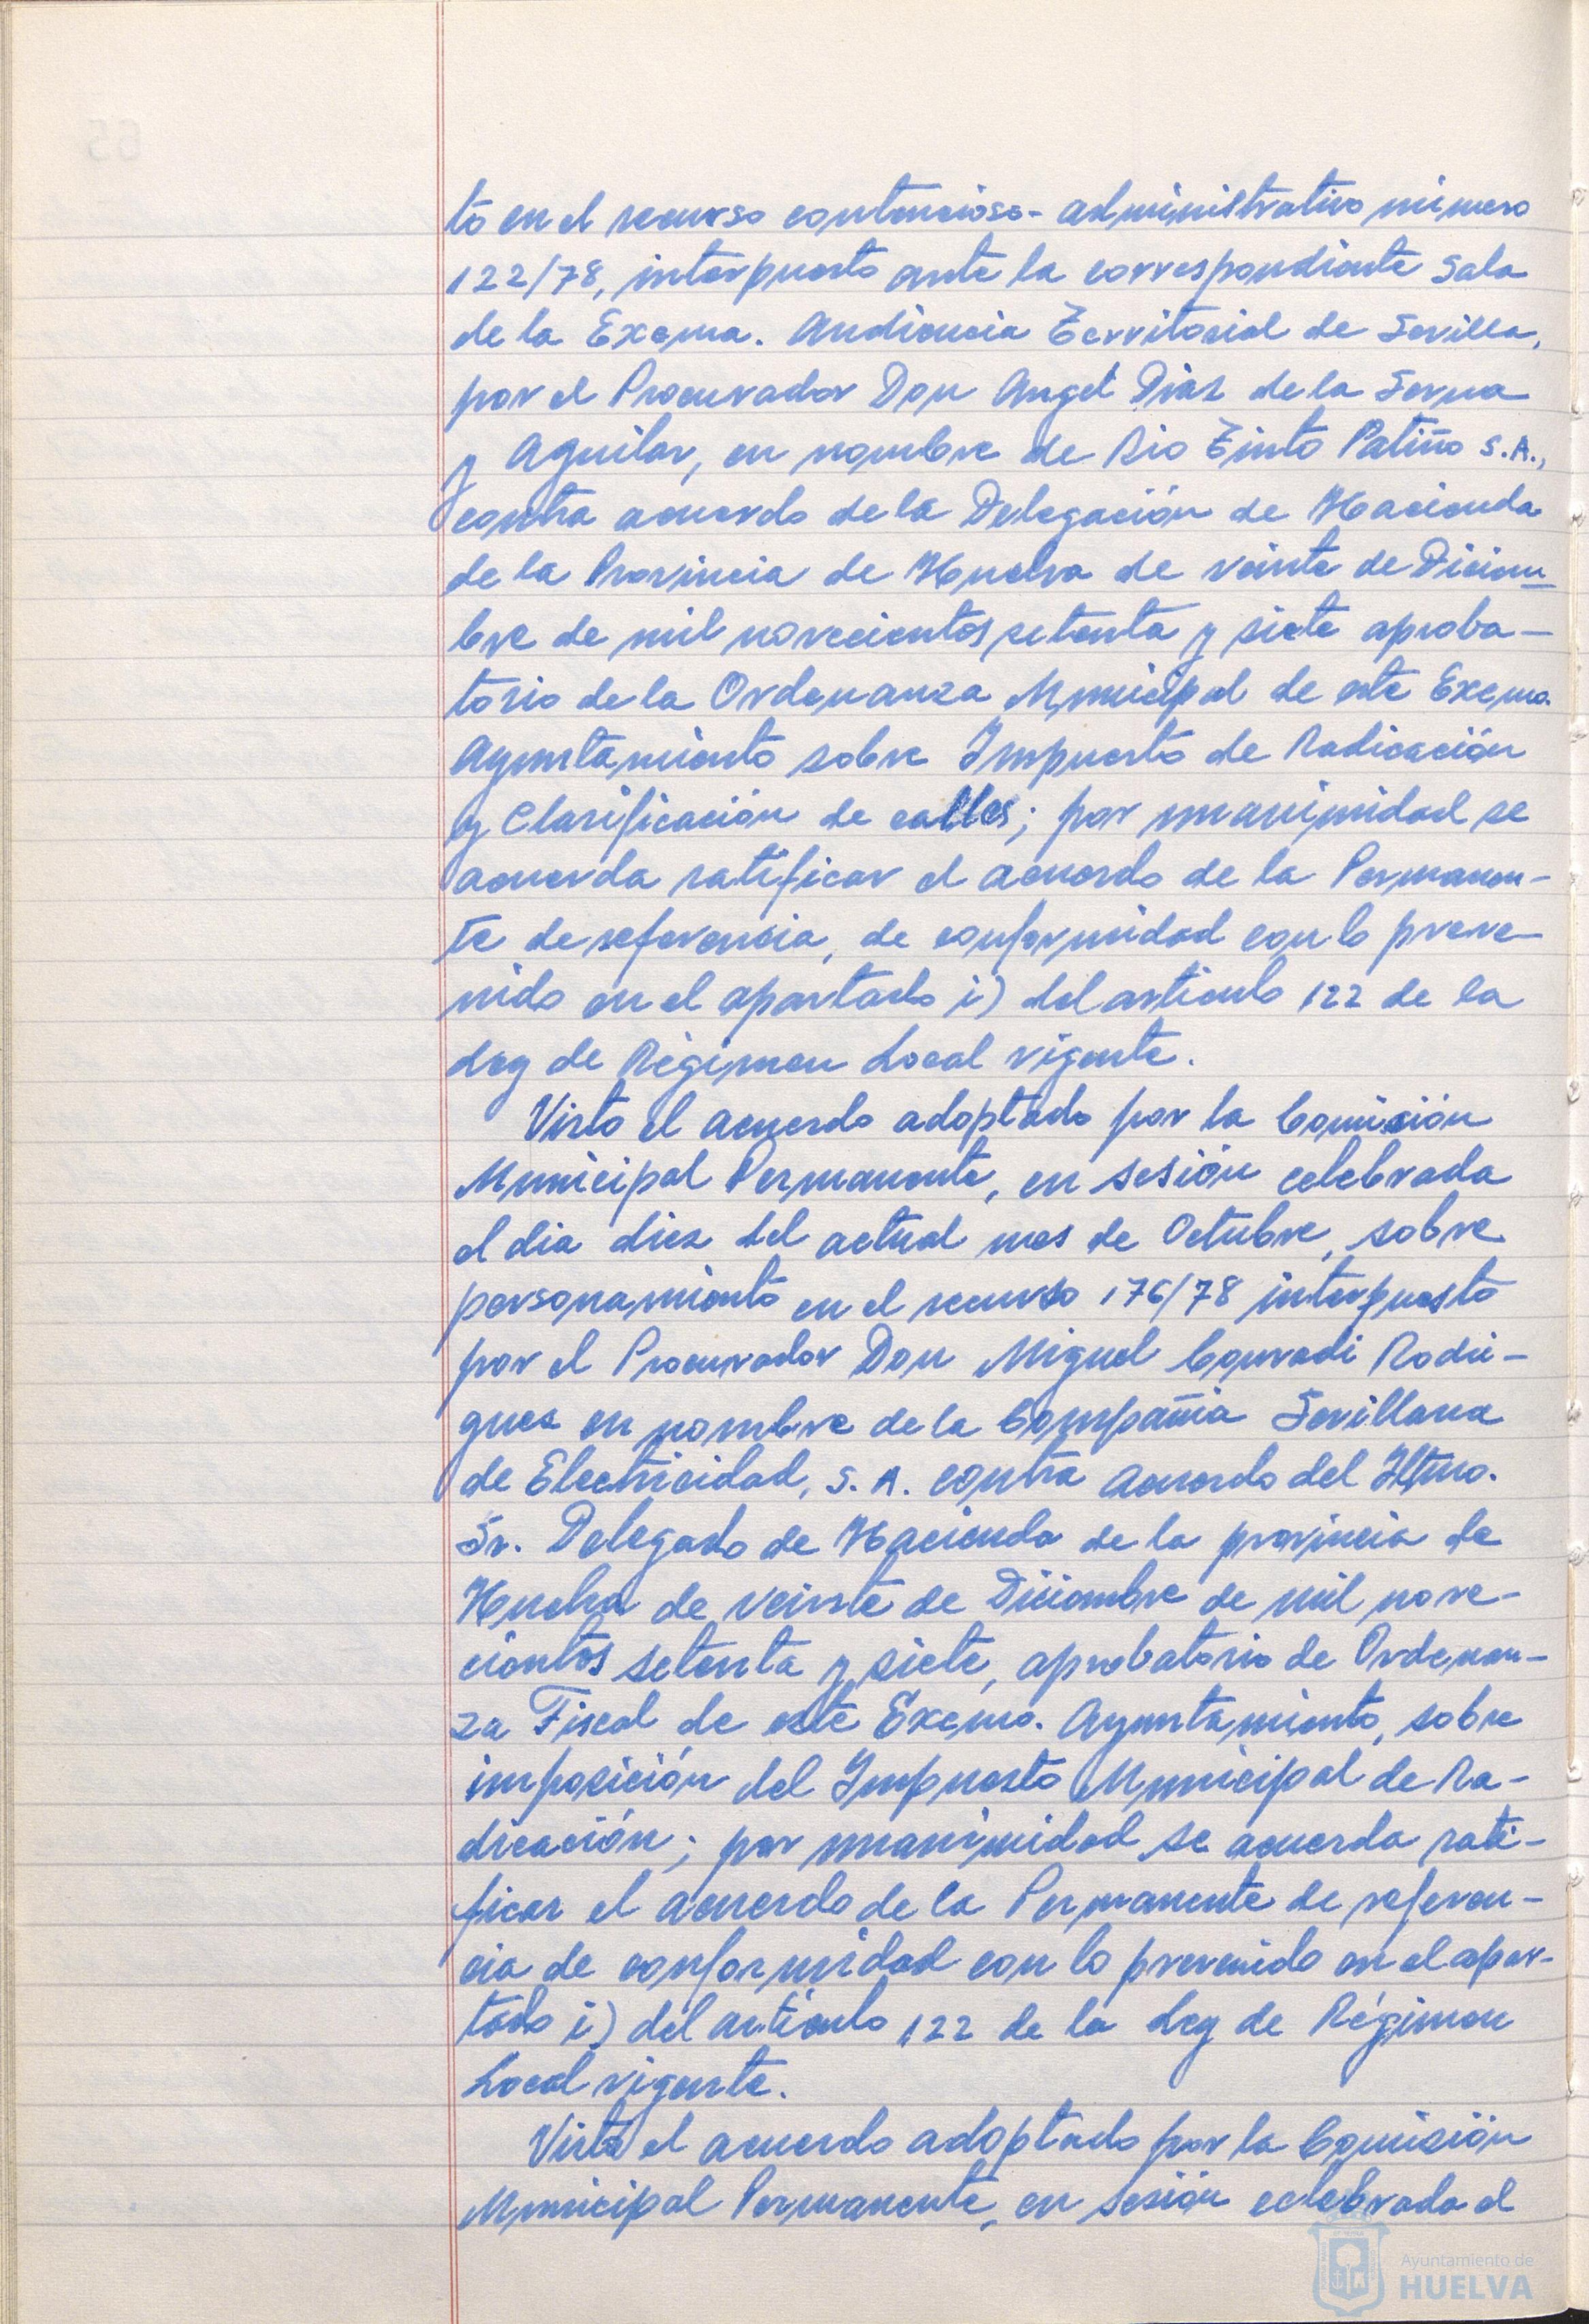 to en el recurso contencioso-administrativo número
122/78, interpuesto ante la correspondiente Sala
de la Excma. Audiencia Territorial de Sevilla,
por el Procurador Don Angel Diaz de la Serna
y Aguilar, en nombre de Rio Tinto Patiño S.A.,
contra acuerdo de la Delegación de Hacienda
de la Provincia de Huelva de veinte de Diciem-
bre de mil novecientos setenta y siete aproba-
torio de la Ordenanza Municipal de este Excmo.
Ayuntamiento sobre Impuesto de Radicación
y Clasificación de calles; por unanimidad se
acuerda ratificar el acuerdo de la Permanen-
te de referencia, de conformidad con lo preve-
nido en el apartado i) del articulo 122 de la
Ley de Régimen Local vigente.
Visto el acuerdo adoptado por la Comisión
Municipal Permanente, en sesión celebrada
el dia diez del actual mes de Octubre, sobre
personamiento en el recurso 176/78 interpuesto
por el Procurador Don Miguel Conradi Rodri-
guez en nombre de la Compañia Sevillana
de Electricidad, S.A. contra acuerdo del Iltmo.
Sr. Delegado de Hacienda de la provincia de
Huelva de veinte de Diciembre de mil nove-
cientos setenta y siete, aprobatorio de Ordenan-
za Fiscal de este Excmo. Ayuntamiento, sobre
imposición del Impuesto Municipal de Ra-
dicación; por unanimidad se acuerda rati-
ficar el acuerdo de la Permanente de referen-
cia de conformidad con lo prevenido en el apar-
tado i) del artículo 122 de la Ley de Régimen
Local vigente.
Visto el acuerdo adoptado por la Comisión
Municipal Permanente, en sesión celebrada el
Ayuntamiento de
HUELVA